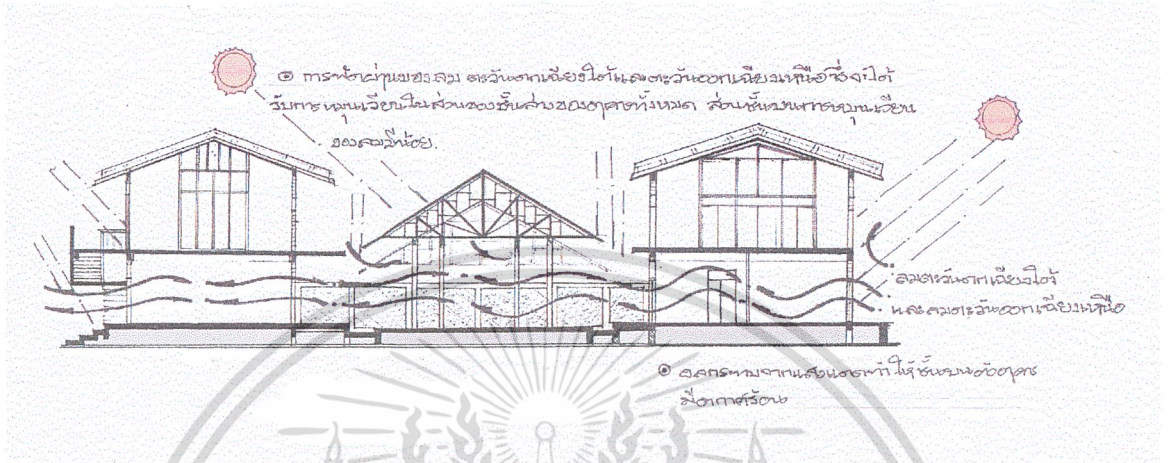 ๏ การพัดผ่านของลม ตะวันตกเฉียงใต้และตะวันออกเฉียงเหนือ ซึ่งจะได้
รับการหมุนเวียนในส่วนของชั้นล่างของอาคารทั้งหมด ส่วนชั้นบนการหมุนเวียน
ของลมมีน้อย.
ลมตะวันตกเฉียงใต้
และลมตะวันออกเฉียงเหนือ
๏ ผลกระทบจากแสงแดดทำให้ชั้นบนตัวอาคาร
มีอากาศร้อน